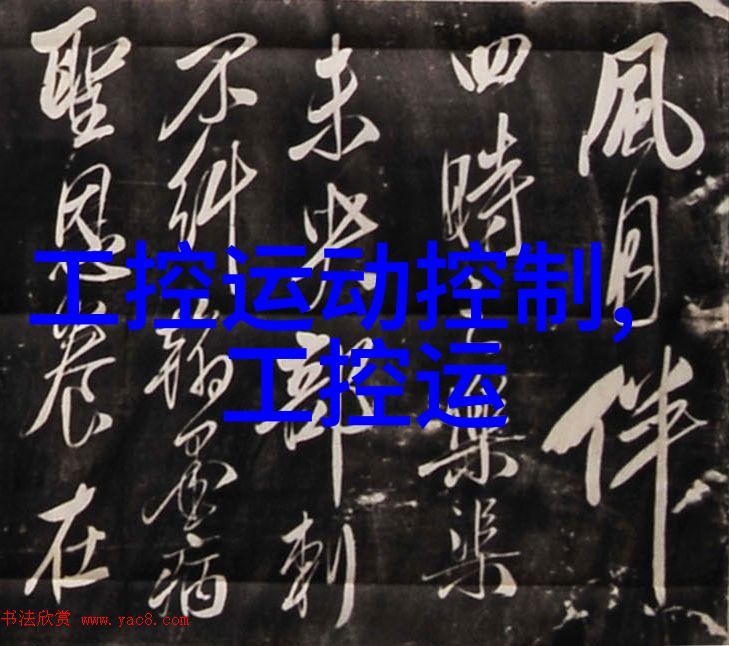 風月伴
四時樂渠
未部刺
不糾翰墨病
聖恩養在
工控运动控制,
工控运
书法欣赏 www.yac8.com